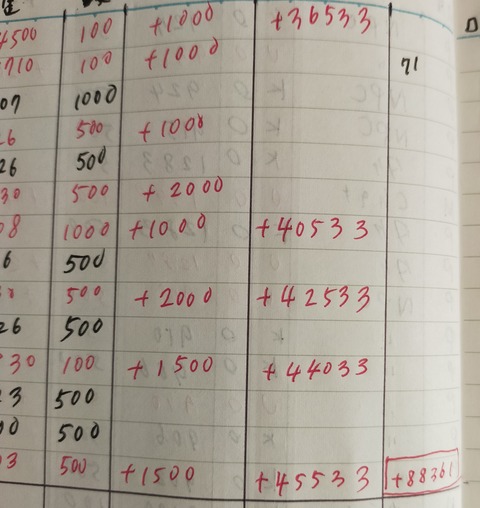 4500 100 +1000 +36533
710 100 +1000 71
07 1000
26 500 +1000
26 500
30 500 +2000
08 1000 +1000 +40533
6 500
500 +2000 +42533
26 500
30 100 +1500 +44033
3 500
00 500
03 500 +1500 +45533 +88361